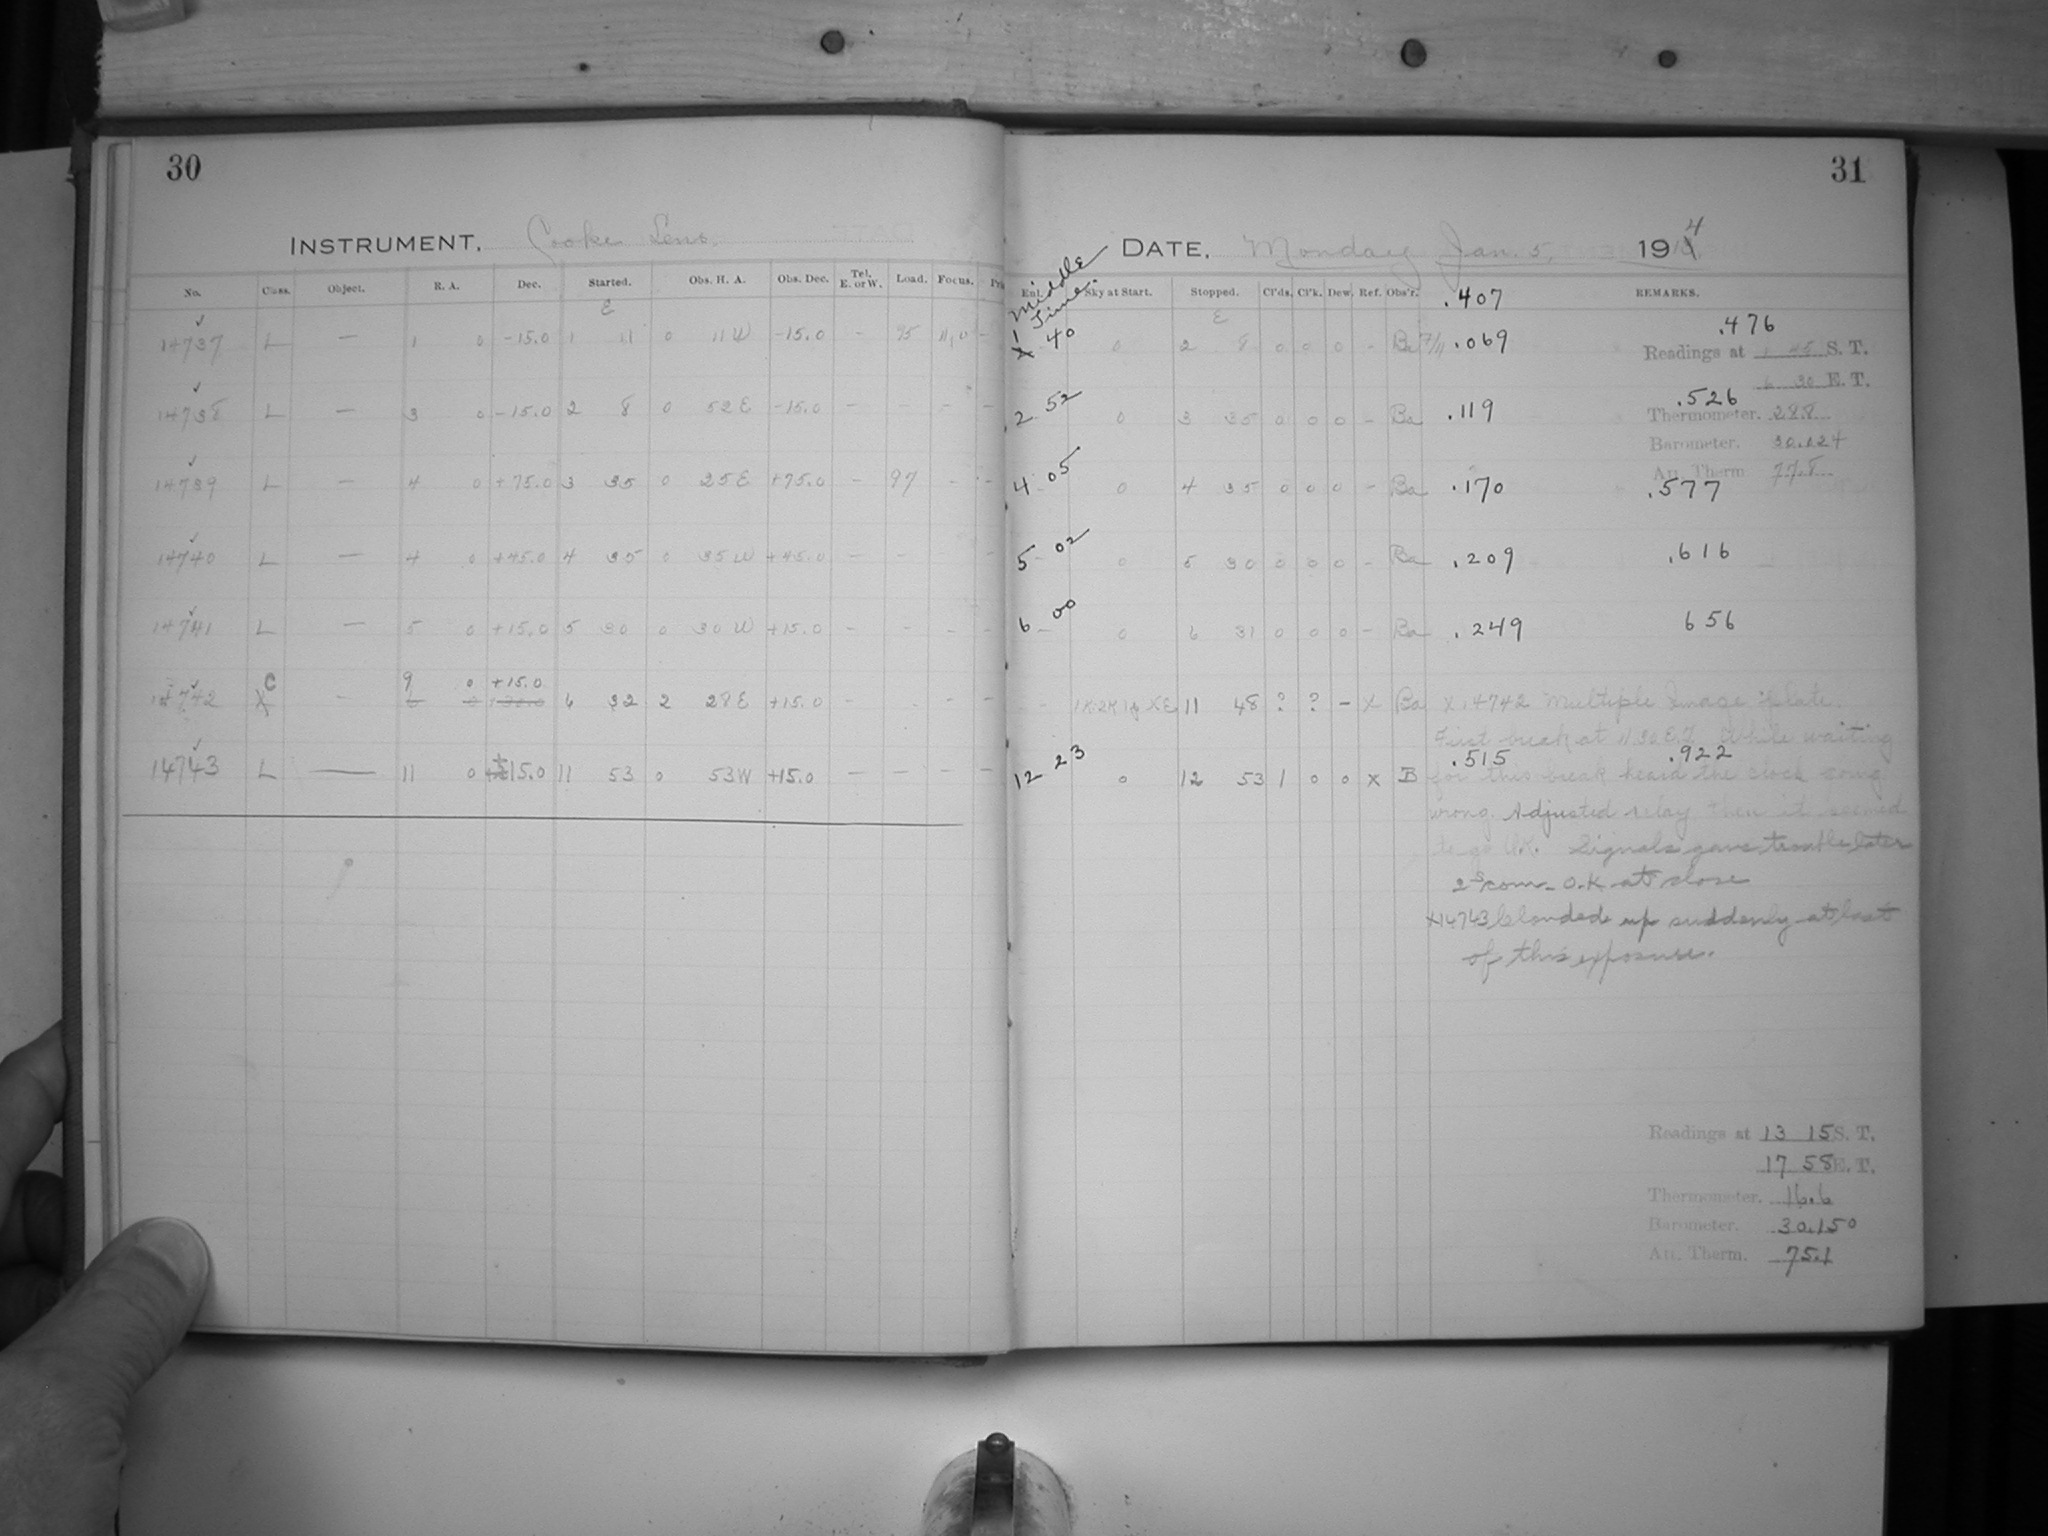 30
INSTRUMENT. Cooke Lens.
No. Class. Object. R. A. Dec. Started. Obs. H. A. Obs. Dec. Tel. E. or W. Load. Focus.
E
14737 L — 1 0 -15.0 1 11 0 11W -15.0 - 95
14738 L — 3 0 -15.0 2 8 0 52E -15.0 - - - -
14739 L — 4 0 +75.0 3 35 0 25E +75.0 - 97 - -
14740 L — 4 0 +45.0 4 35 0 35W +45.0 - -
14741 L — 5 0 +15.0 5 30 0 30W +15.0 - - - -
C 9 0 +15.0
14742 X - 6 32 2 28E +15.0 - - - -
14743 L — 11 0 +15.0 11 53 0 53W +15.0 — — — —
31
DATE. Monday Jan. 5, 1914
Middle Time. Sky at Start. Stopped. Cl'ds. Cl'k. Dew. Ref. Obs'r. .407 REMARKS.
E
1 40 0 2 8 0 0 0 - Ba .069 .476
Readings at 1 45 S. T.
6 30 E. T.
2 52 0 3 35 0 0 0 - Ba .119 .526
Thermometer. 28.8
Barometer. 30.024
Att. Therm. 77.8
4 05 0 4 35 0 0 0 - Ba .170 .577
5 02 0 5 30 0 0 0 - Ba .209 .616
6 00 0 6 31 0 0 0 - Ba .249 656
11 48 ? ? - X Ba X 14742 Multiple Image Plate.
First break at While waiting
12 23 0 12 53 1 0 0 X B .515 .922
for this break heard the clock going
wrong. Adjusted relay then it seemed
to go O.K. Signals gave trouble later
2s com- O.K at close
X14743 Clouded up suddenly at last
of this exposure.
Readings at 13 15 S. T.
17 58 E. T.
Thermometer. 16.6
Barometer. 30.150
Att. Therm. 75.1